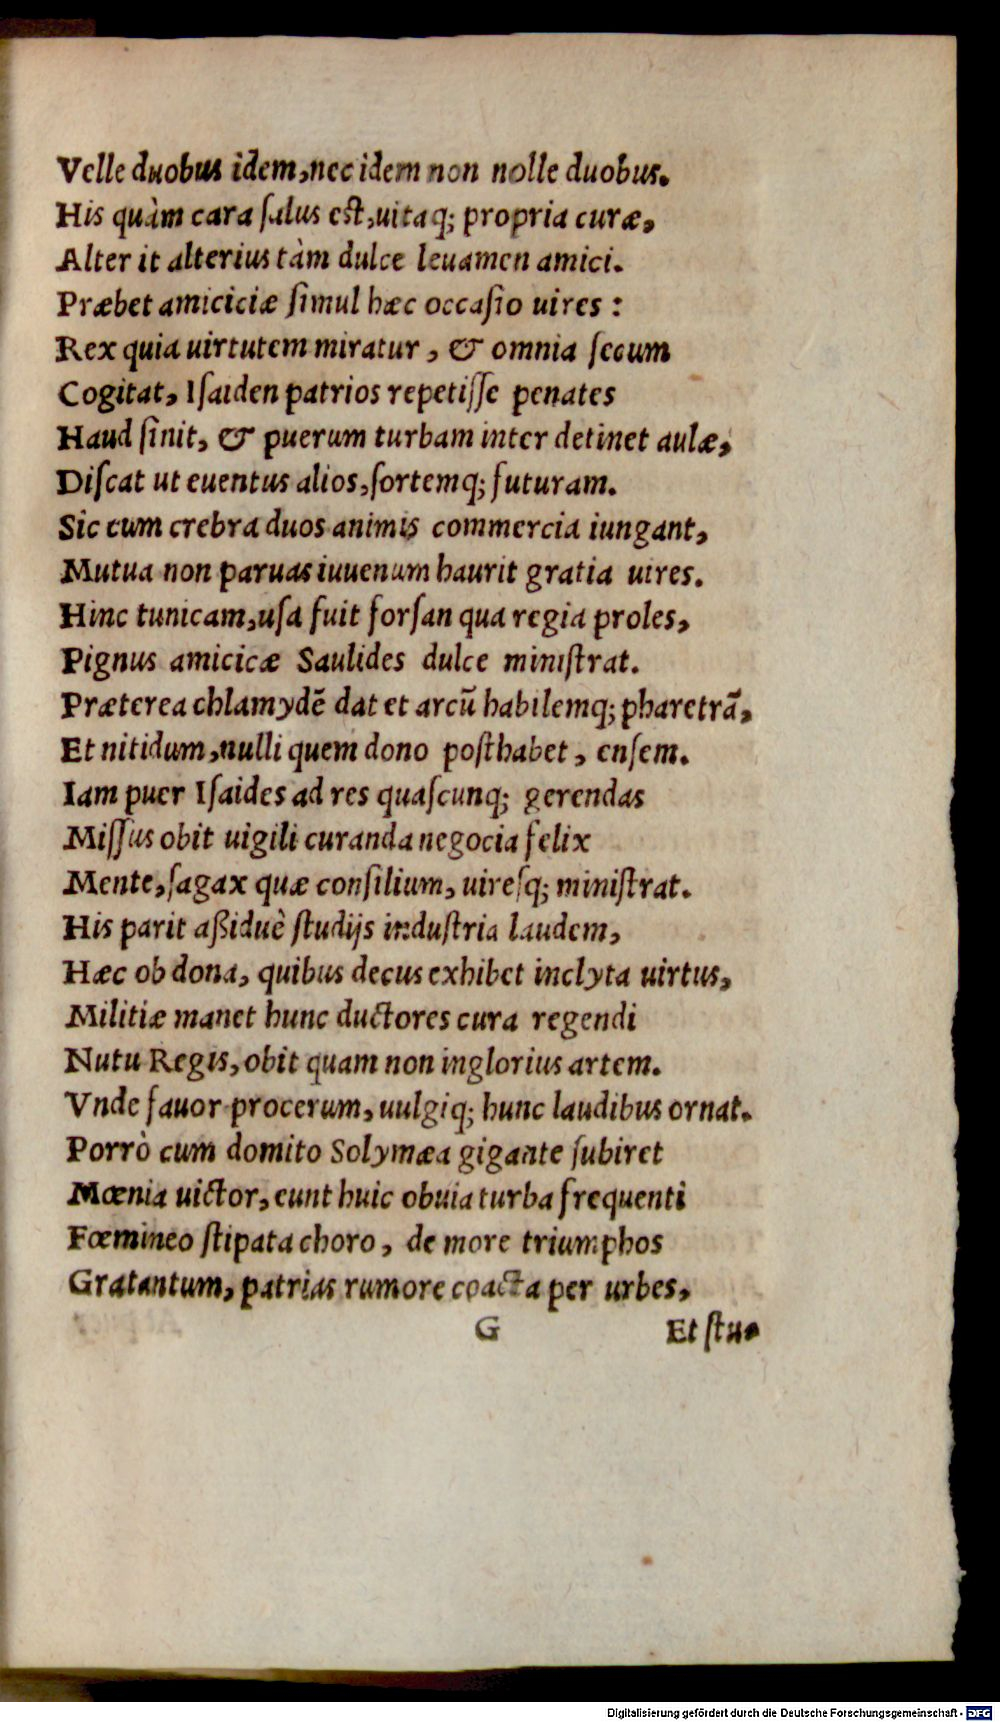 Velle duobus idem, nec idem non nolle duobus.
His quàm cara ſalus eſt, uitaq; propria curæ,
Alter it alterius tàm dulce leuamen amici.
Præbet amiciciæ ſimul hæc occaſio uires :
Rex quia uirtutem miratur, & omnia ſecum
Cogitat, Iſaiden patrios repetiſſe penates
Haud ſinit, & puerum turbam inter detinet aulæ,
Diſcat ut euentus alios, ſortemq; futuram.
Sic cum crebra duos animis commercia iungant,
Mutua non paruas iuuenum haurit gratia uires.
Hinc tunicam, uſa fuit forſan qua regia proles,
Pignus amicicæ Saulides dulce miniſtrat.
Præterea chlamydẽ dat et arcũ habilemq; pharetrã,
Et nitidum, nulli quem dono poſthabet, enſem.
Iam puer Iſaides ad res quaſcunq; gerendas
Miſſus obit uigili curanda negocia felix
Mente, ſagax quæ conſilium, uireſq; miniſtrat.
His parit aßiduè ſtudijs induſtria laudem,
Hæc ob dona, quibus decus exhibet inclyta uirtus,
Militiæ manet hunc ductores cura regendi
Nutu Regis, obit quam non inglorius artem.
Vnde fauor procerum, uulgiq; hunc laudibus ornat.
Porrò cum domito Solymæa gigante ſubiret
Mœnia uictor, eunt huic obuia turba frequenti
Fœmineo ſtipata choro, de more triumphos
Gratantum, patrias rumore coacta per urbes,
G Et ſtu-
Digitalisierung gefördert durch die Deutsche Forschungsgemeinschaft - DFG